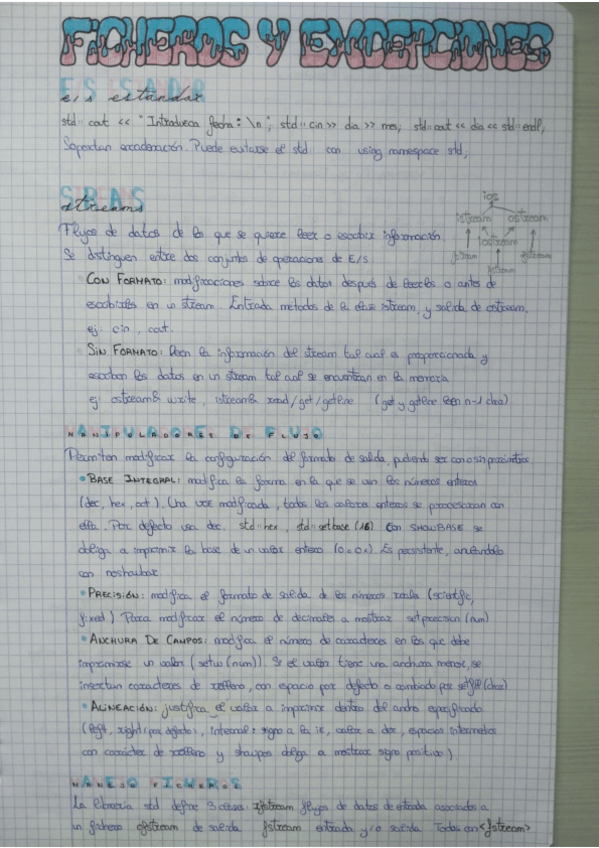 FICHEROS Y EXCEPCIONES
E/S ESTANDAR
e/s estándar
std::cout << "Introduzca fecha: \n"; std::cin >> dia >> mes; std::cout << dia << std::endl;
Soportan encadenación. Puede evitarse el std con using namespace std;
STREAMS
streams
Flujos de datos de los que se quiere leer o escribir información.
Se distinguen entre dos conjuntos de operaciones de E/S
ios
istream ostream
iostream
CON FORMATO: modificaciones sobre los datos después de leerlos o antes de
escribirlos en un stream. Entrada métodos de la clase istream, y salida de ostream.
ej: cin, cout.
SIN FORMATO: leen la información del stream tal cual es proporcionada y
escriben los datos en un stream tal cual se encuentran en la memoria
ej: ostream& write, istream& read/get/getline (get y getline leen n-1 char)
MANIPULADORES DE FLUJO
Permiten modificar la configuración del formato de salida, pudiendo ser con o sin parámetros.
• BASE INTEGRAL: modifica la forma en la que se ven los números enteros
(dec, hex, oct). Una vez modificada, todos los valores enteros se procesaran con
ella. Por defecto usa dec. std::hex, std::setbase (16) Con SHOWBASE se
obliga a imprimir la base de un valor entero (0 o 0x). Es persistente, anulándolo
con noshowbase
• PRECISIÓN: modifica el formato de salida de los números reales (scientific,
fixed) Para modificar el número de decimales a mostrar setprecision (num)
• ANCHURA DE CAMPOS: modifica el número de caracteres en los que debe
imprimirse un valor (setw(num)). Si el valor tiene una anchura menor, se
insertan caracteres de relleno, con espacio por defecto o cambiado por setfill(char)
• ALINEACIÓN: justifica el valor a imprimir dentro del ancho especificado
(left, right (por defecto), internal: signo a la iz, valor a der, espacios intermedios
con carácter de relleno y showpos obliga a mostrar signo positivo).
MANEJO FICHEROS
La librería std define 3 clases: ifstream flujos de datos de entrada asociados a
un fichero ofstream de salida fstream entrada y/o salida Todas con <fstream>